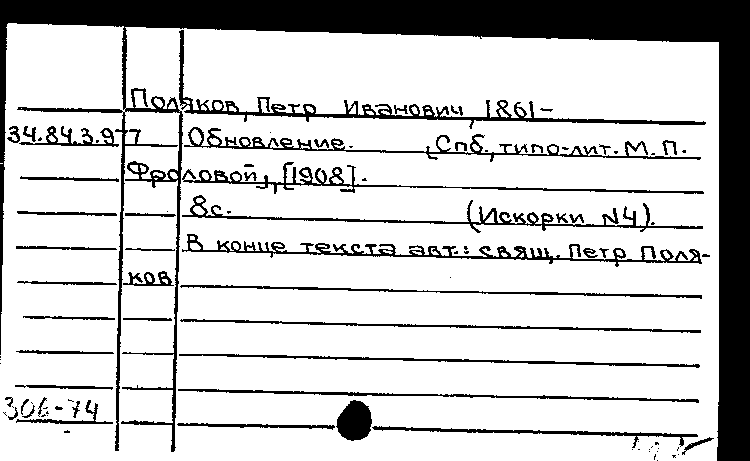 Поляков, Петр Иванович, 1861-
34.84.3.977 Обновление. [Спб., типо-лит. М. П.
Фроловой], [1908].
8с. (Искорки №4).
В конце текста авт.: свящ. Петр Поля-
ков
306-74